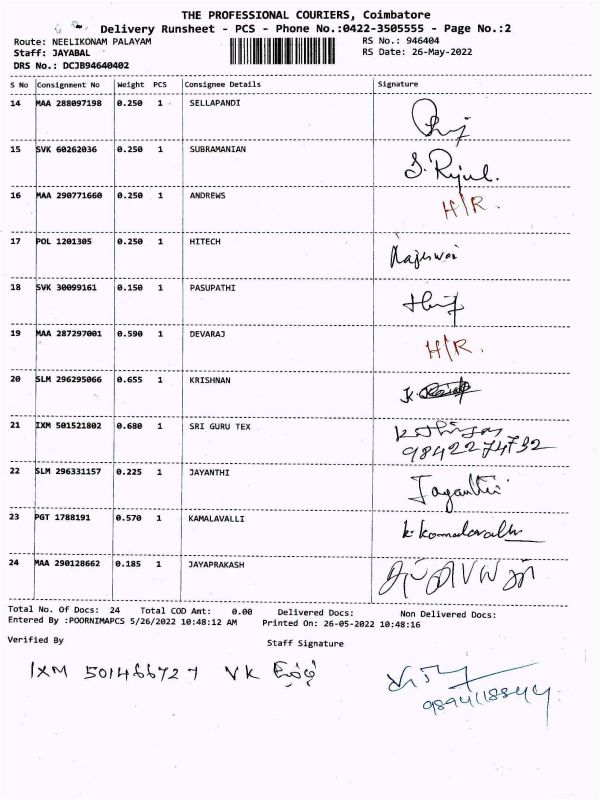 THE PROFESSIONAL COURIERS, Coimbatore
Delivery Runsheet - PCS - Phone No.:0422-3505555 - Page No.:2
Route: NEELIKONAM PALAYAM RS No.: 946404
Staff: JAYABAL RS Date: 26-May-2022
DRS No.: DCJB94640402
S No Consignment No Weight PCS Consignee Details Signature
14 MAA 288097198 0.250 1 SELLAPANDI
15 SVK 60262036 0.250 1 SUBRAMANIAN
16 MAA 290771660 0.250 1 ANDREWS H/R.
17 POL 1201305 0.250 1 HITECH
18 SVK 30099161 0.150 1 PASUPATHI
19 MAA 287297001 0.590 1 DEVARAJ H/R.
20 SLM 296295066 0.655 1 KRISHNAN
21 IXM 501521802 0.680 1 SRI GURU TEX
9842274732
22 SLM 296331157 0.225 1 JAYANTHI Jayanthi
23 PGT 1788191 0.570 1 KAMALAVALLI K. Komalavalli
24 MAA 290128662 0.185 1 JAYAPRAKASH
Total No. Of Docs: 24 Total COD Amt: 0.00 Delivered Docs: Non Delivered Docs:
Entered By :POORNIMAPCS 5/26/2022 10:48:12 AM Printed On: 26-05-2022 10:48:16
Verified By Staff Signature
IXM 501466727 VK
9894118844